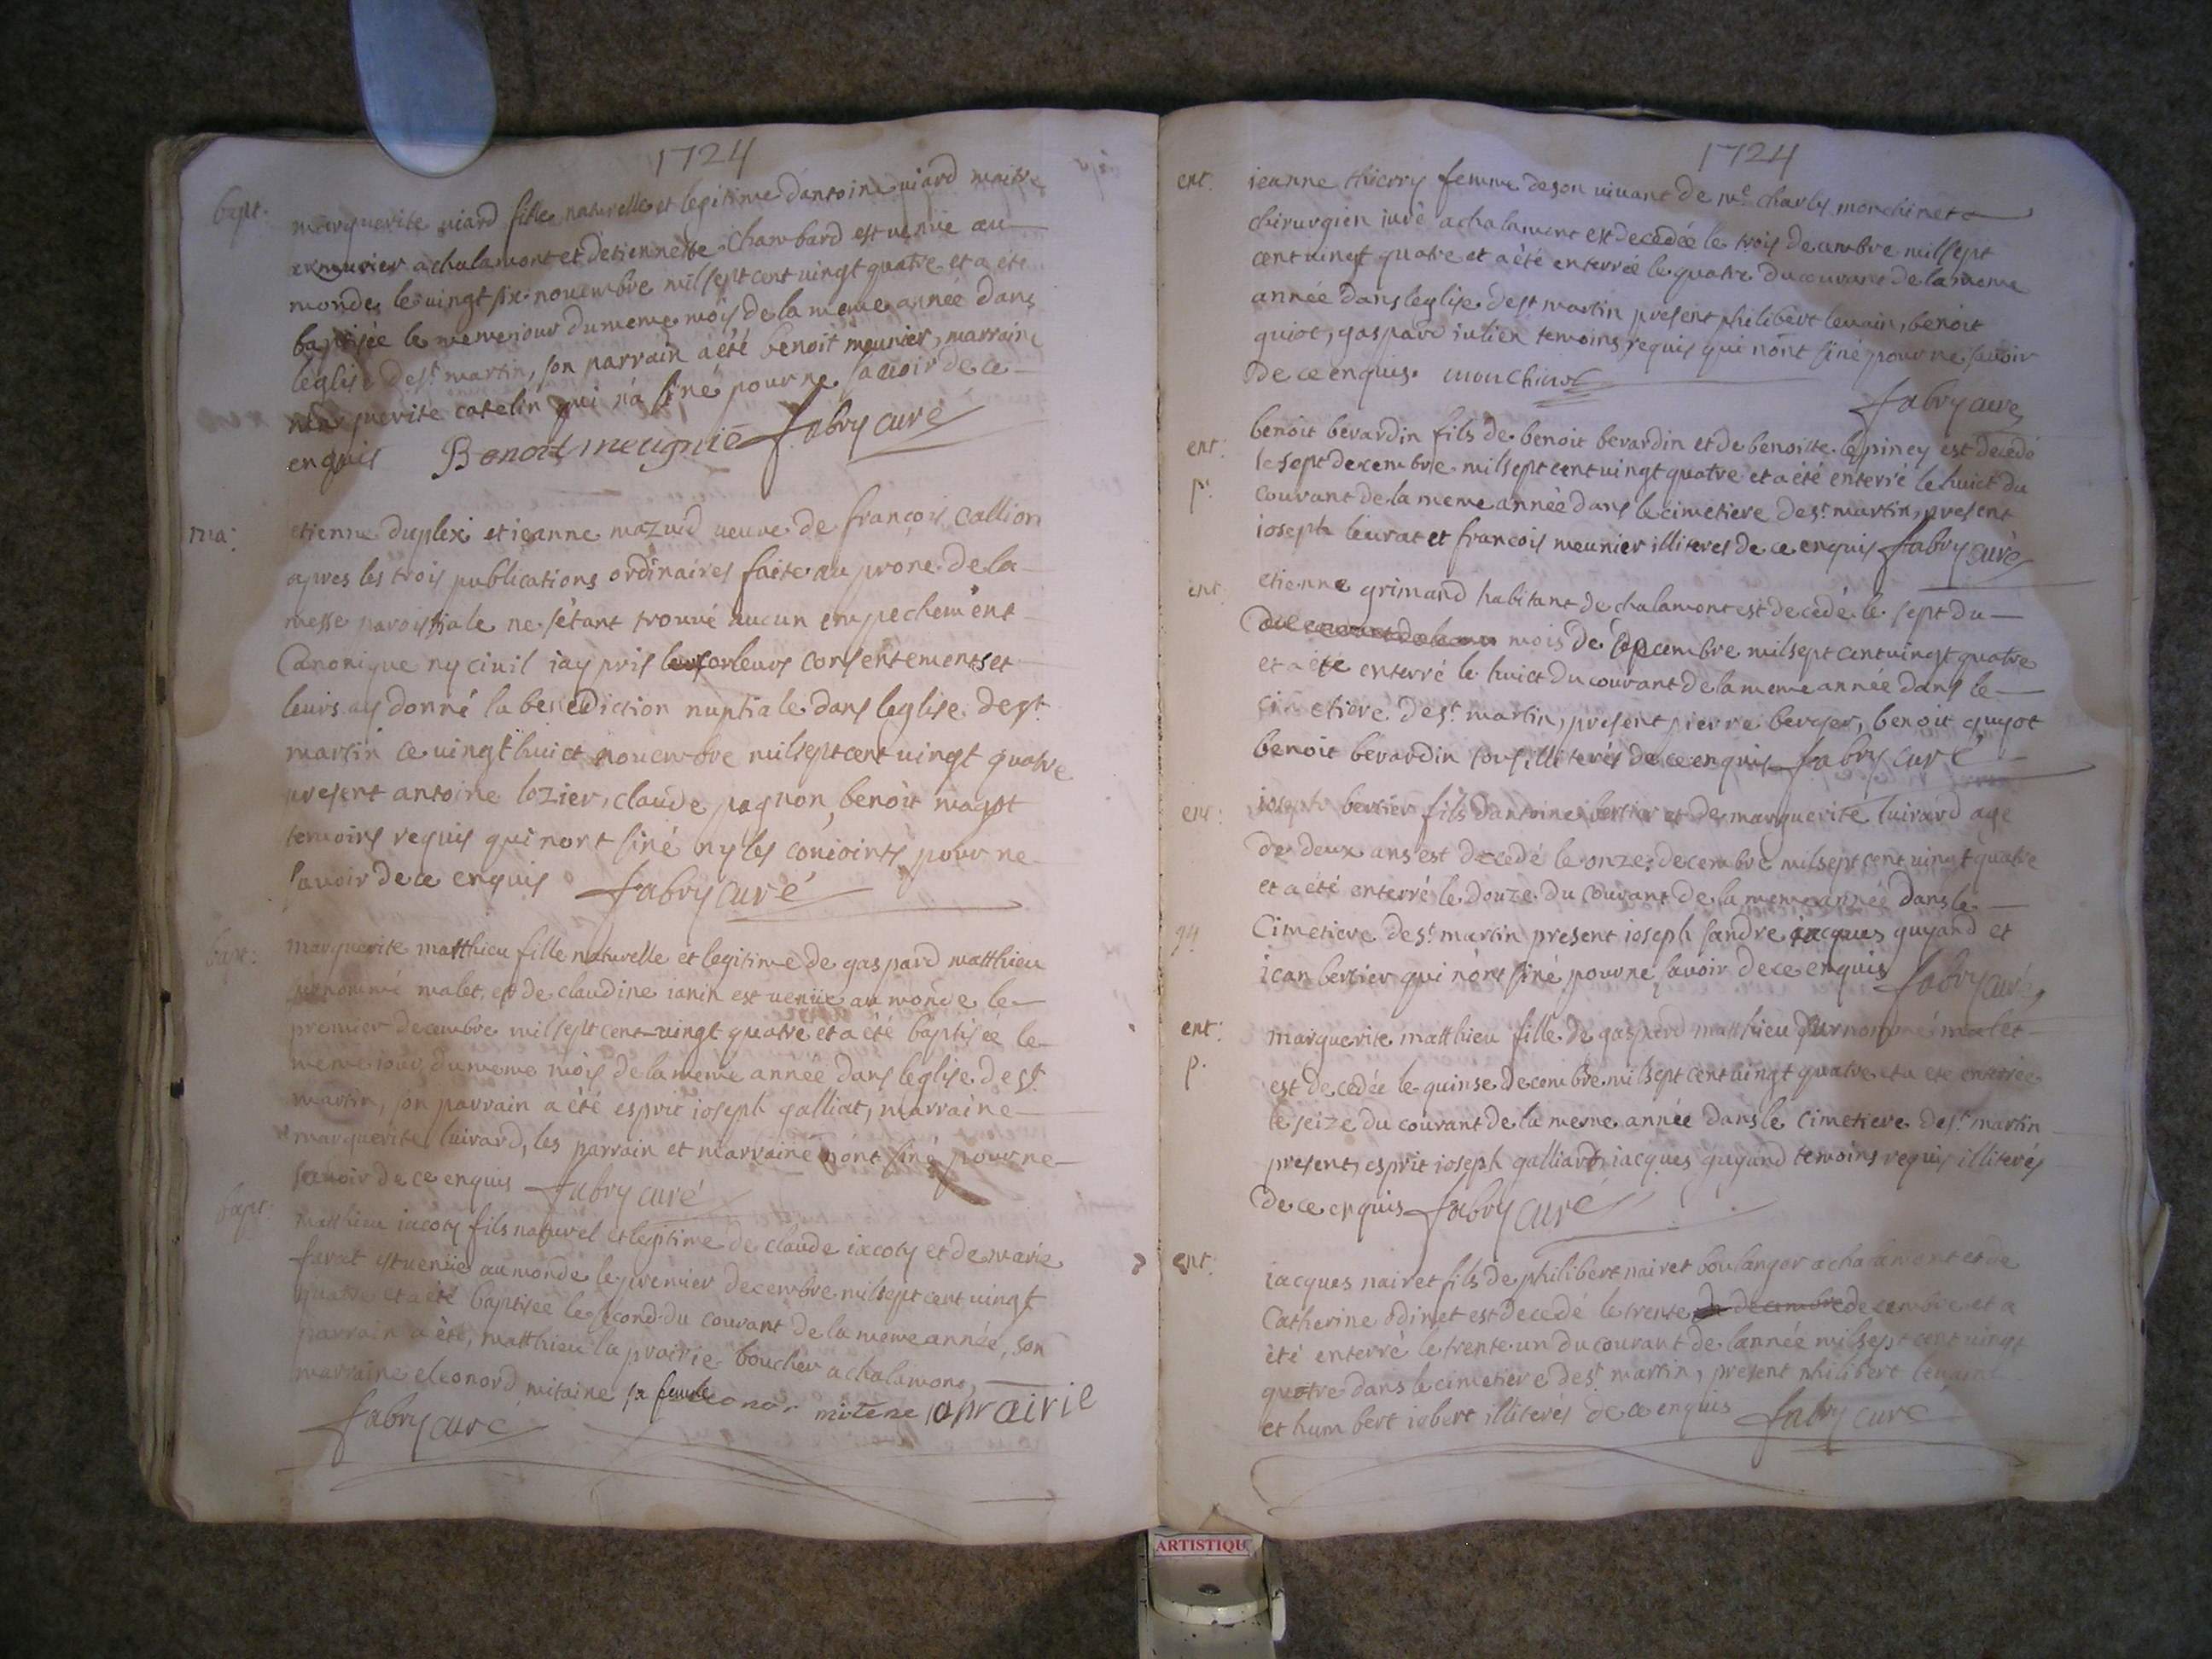 1724
bapt.
marguerite viard fille naturelle et legitime dantoine viard maitre
armurier a chalamont et detiennette Chambard est venüe au
monde le vingt six novembre mil sept cent vingt quatre et a été
baptisée le meme jour du meme mois de la meme année dans
leglise de st martin, son parrain a été benoit meunier, marraine
marguerite catelin qui n'a siné pour ne savoir de ce
enquis Benoit meugnié fabry curé
ma:
etienne duplex et jeanne mazuid veuve de françois callion
apres les trois publications ordinaires faite au prone de la
messe paroissiale ne s'étant trouvé aucun empechement
Canonique ny civil iay pris leurs consentements et
leurs ay donné la benediction nuptiale dans leglise de st
martin ce vingt huict novembre mil sept cent vingt quatre
present antoine lozier, claude pagnon, benoit magot
temoins requis qui nont siné ny les conioints pour ne
savoir de ce enquis fabry curé
bapt:
marguerite matthieu fille naturelle et legitime de gaspard matthieu
surnommé malet, et de claudine ianin est venüe au monde le
premier decembre mil sept cent vingt quatre et a été baptisée le
meme iour du meme mois de la meme année dans leglise de st
martin, son parrain a été esprit ioseph galliat, marraine
marguerite luirard, les parrain et marraine n'ont siné pour ne
savoir de ce enquis fabry curé
bapt:
matthieu iacoty fils naturel et legitime de claude iacoty et de marie
ferat est venüe au monde le premier decembre mil sept cent vingt
quatre et a été baptisée le second du couvant de la meme année, son
parrain a été, matthieu la prairie boucher a chalamont,
marraine eleonord mitaine sa femme leonor mitene laprairie
fabry curé
1724
ent:
ieanne thierry femme de son vivant de me charles monchinet
chirurgien iuré a chalamont est decedée le trois decembre mil sept
cent vingt quatre et a été enterrée le quatre du couvant de la meme
année dans leglise de st martin present philibert levain, benoit
guiot, gaspard iulien temoins requis qui n'ont siné pour ne savoir
de ce enquis. monchinet
fabry curé
ent:
benoit berardin fils de benoit berardin et de benoitte lepiney est decedé
le sept decembre mil sept cent vingt quatre et a été enterré le huict du
p.
couvant de la meme année dans le cimetiere de st martin, present
ioseph leurat et francois meunier illiterés de ce enquis fabry curé
ent:
etienne grimand habitant de chalamont est decedé le sept du
mois de decembre mil sept cent vingt quatre
et a été enterré le huict du couvant de la meme année dans le
cimetiere de st martin, present pierre berger, benoit guyot
benoit berardin tous illiterés de ce enquis fabry curé
ent:
ioseph bertier fils dantoine bertier et de marguerite luirard age
de deux ans est decedé le onze decembre mil sept cent vingt quatre
et a été enterré le douze du couvant de la meme année dans le
Cimetiere de st martin present ioseph sandre iacques guyand et
iean bertier qui n'ont siné pour ne savoir de ce enquis fabry curé
ent:
marguerite matthieu fille de gaspard matthieu surnommé malet
p.
est decedée le quinse decembre mil sept cent vingt quatre et a été enterrée
le seize du courant de la meme année dans le cimetiere de st martin
present, esprit ioseph galliard, iacques guyand temoins requis illiterés
de ce enquis fabry curé
ent:
iacques nairet fils de philibert nairet boulanger a chalamont et de
Catherine odinet est decedé le trente decembre et a
été enterré le trente un du courant de lannée mil sept cent vingt
quatre dans le cimetiere de st martin, present philibert levain
et humbert iobert illiterés de ce enquis fabry curé
ARTISTIQU